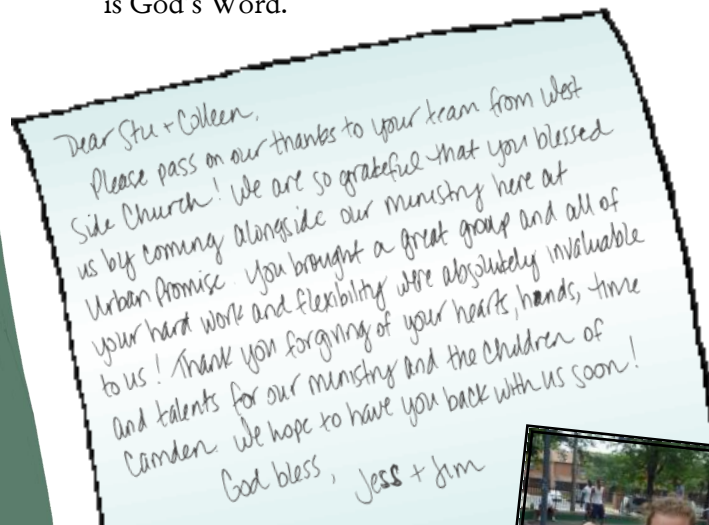 is God's Word.
Dear Stu + Colleen,
Please pass on our thanks to your team from West
Side Church! We are so grateful that you blessed
us by coming alongside our ministry here at
Urban Promise. You brought a great group and all of
your hard work and flexibility were absolutely invaluable
to us! Thank you forgiving of your hearts, hands, time
and talents for our ministry and the children of
Camden. We hope to have you back with us soon!
God bless, Jess + Jim